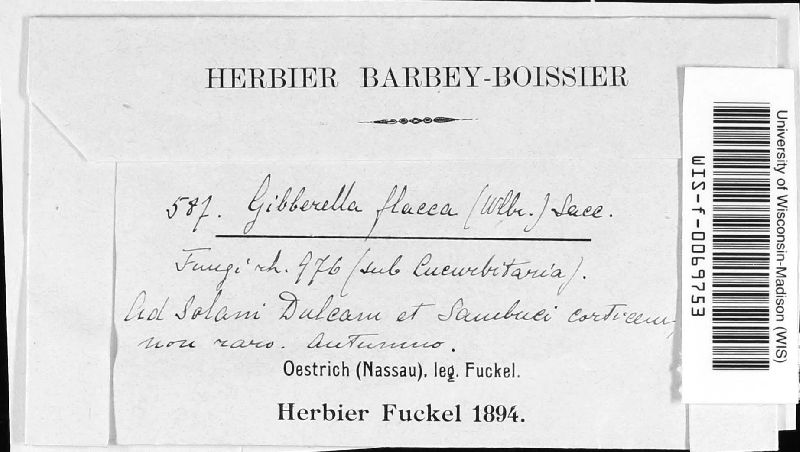 HERBIER BARBEY-BOISSIER
587. Gibberella flacca (Wllr.) Sacc.
Fungi rh. 976 (sub Cucurbitaria).
Ad Solani Dulcam et Sambuci corticem,
non raro. Autumno.
Oestrich (Nassau), leg. Fuckel.
Herbier Fuckel 1894.
University of Wisconsin-Madison (WIS)
WIS-f-0069753